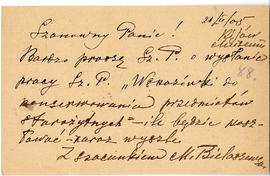 Szanowny Panie!
20/II/05
Kijów
Muzeum
Bardzo proszę Sz. P. o wysłanie
pracy Sz. P. „Wskazówki do
konserwowania przedmiotów
88.
starożytnych” — ile będzie kosz-
tować - zaraz wyszlę.
Z szacunkiem M. Bielaszews